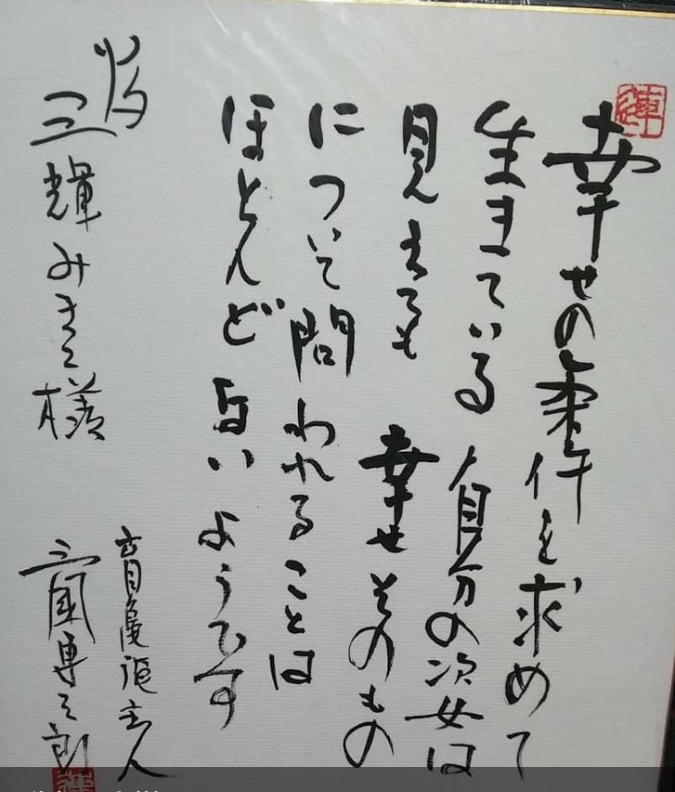 幸せの条件を求めて
生きている 自分の姿は
見えても 幸せそのもの
について 問われることは
ほとんど ないようです
為
三輝みきこ様
主人
三國連太郎
連